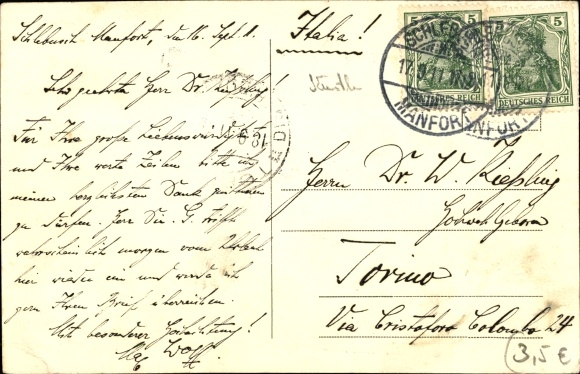 Schlebusch Manfort, den 16. Sept. 11.
Sehr geehrter Herr Dr. Kießling!
Für Ihre große Liebenswürdigkeit
und Ihre werte Zeilen bitte ich
meinen herzlichsten Dank
zu dürfen. Herr Dir. G. trifft
wahrscheinlich morgen vom
hier wieder ein und werde ich
gern Ihren Brief überreichen.
Mit besonderer Hochachtung!
Wolff
Italia!
5
5
DEUTSCHES REICH
DEUTSCHES REICH
SCHLEBUSCH
17.9.11
MANFORT
Herrn Dr. W. Kießling
Hochwohlgeboren
Torino
Via Cristoforo Colombo 24
3,5 €